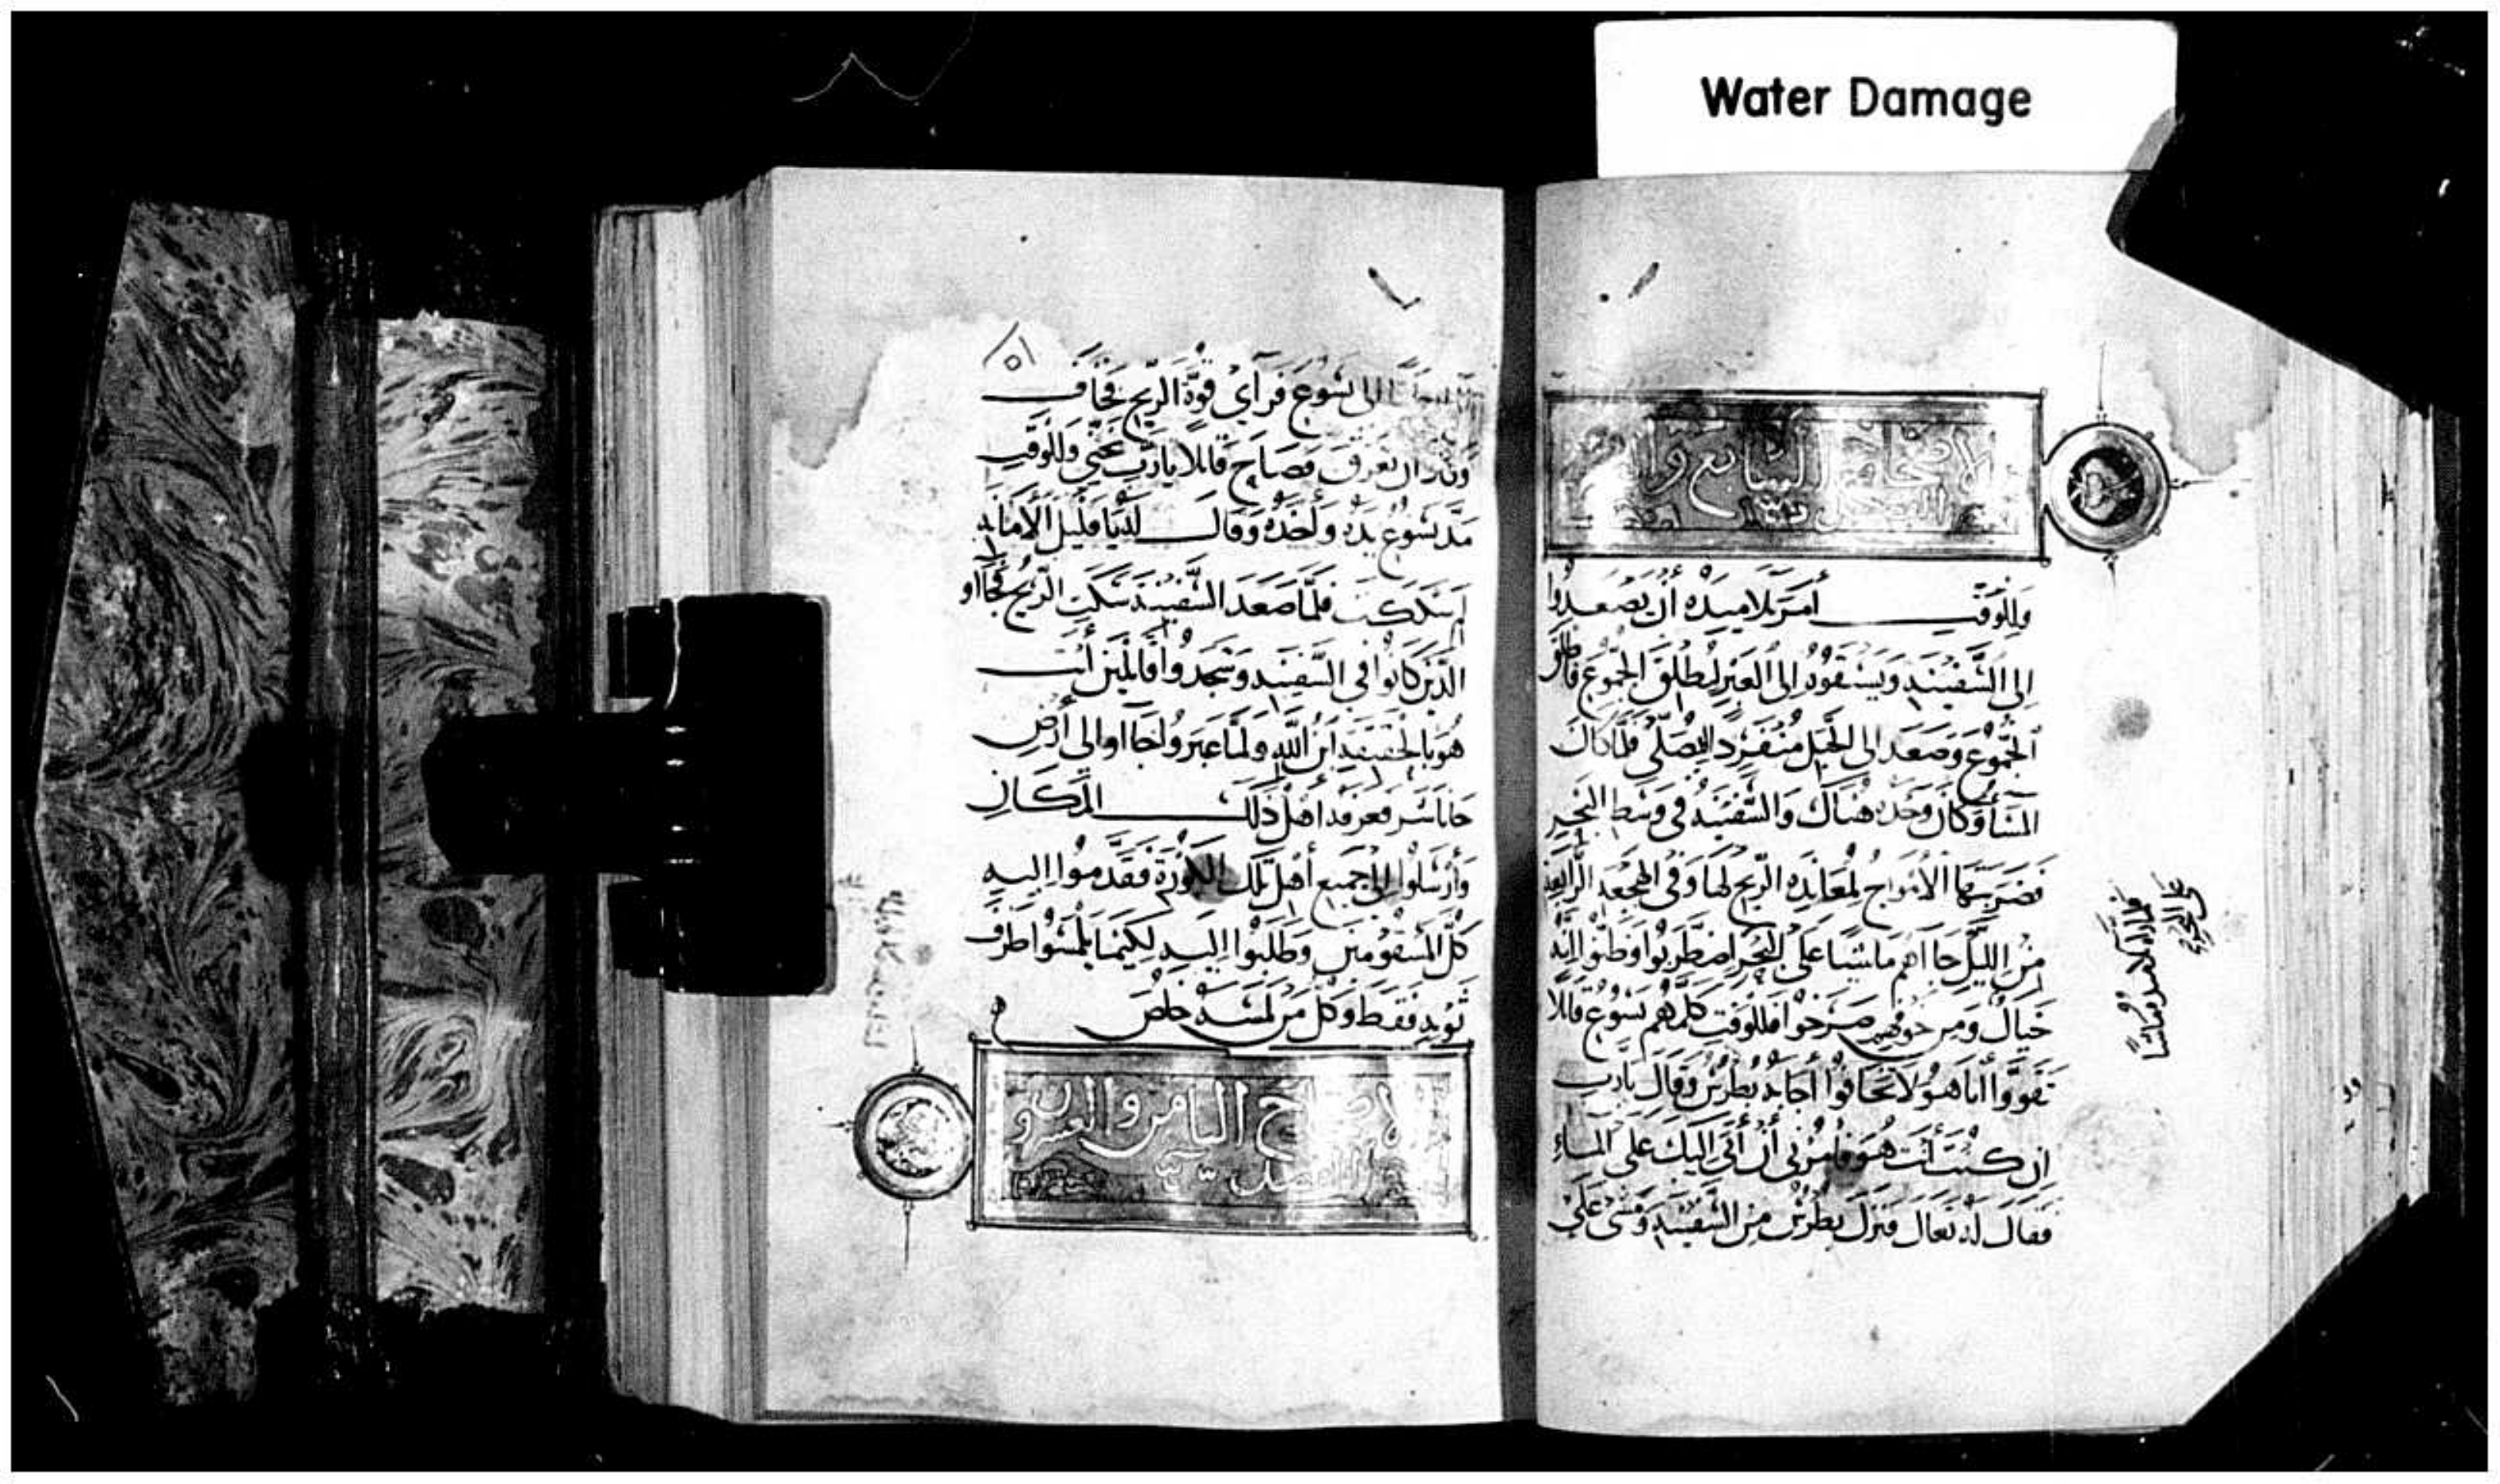 Water Damage
الاصحاح السابع وال
وللوقت أمر تلاميذه أن يصعدوا
الى السفينه ويسبقوه الى العبر ليطلق الجموع فاطلق
الجموع وصعد الى الجبل منفرد ليصلي فلما كان
المسأ وكان وحده هناك والسفينه في وسط البحر
فضربتها الأمواج لمعانده الريح لها وفي الهجعه الرابعه
من الليل جا اهم ماشيا على البحر اضطربوا وظنوا انه
خيال ومن خوفهم صرخوا فللوقت كلمهم يسوع قائلا
تقووا أنا هو لا تخافوا أجابه بطرس وقال يا رب
ان كنت أنت هو فامرني أن أتى اليك على الماء
فقال له تعال فنزل بطرس من السفينه ومشى على
فلما راه التلاميذ ماشيا
على البحر
٥١
الى يسوع فرآي قوة الريح فخاف
وكاد ان يغرق فصاح قائلا يا رب نجني وللوقت
مد يسوع يده وأخذه وقال له يا قليل الأمانه
لم شككت فلما صعد السفينة سكت الريح فجااو
الذين كانوا في السفينه وسجدوا قائلين أنت
هو بالحقيقه ابن الله ولما عبروا جااوا الى أرض
جاناشر فعرفه أهل ذلك المكان
وأرسلوا الى جميع أهل تلك الكورة فقدموا اليه
كل المسقومين وطلبوا اليه لكيما يلمسوا طرف
ثوبه فقط وكل من لمسه خلص
الاصحاح الثامن والعشرون